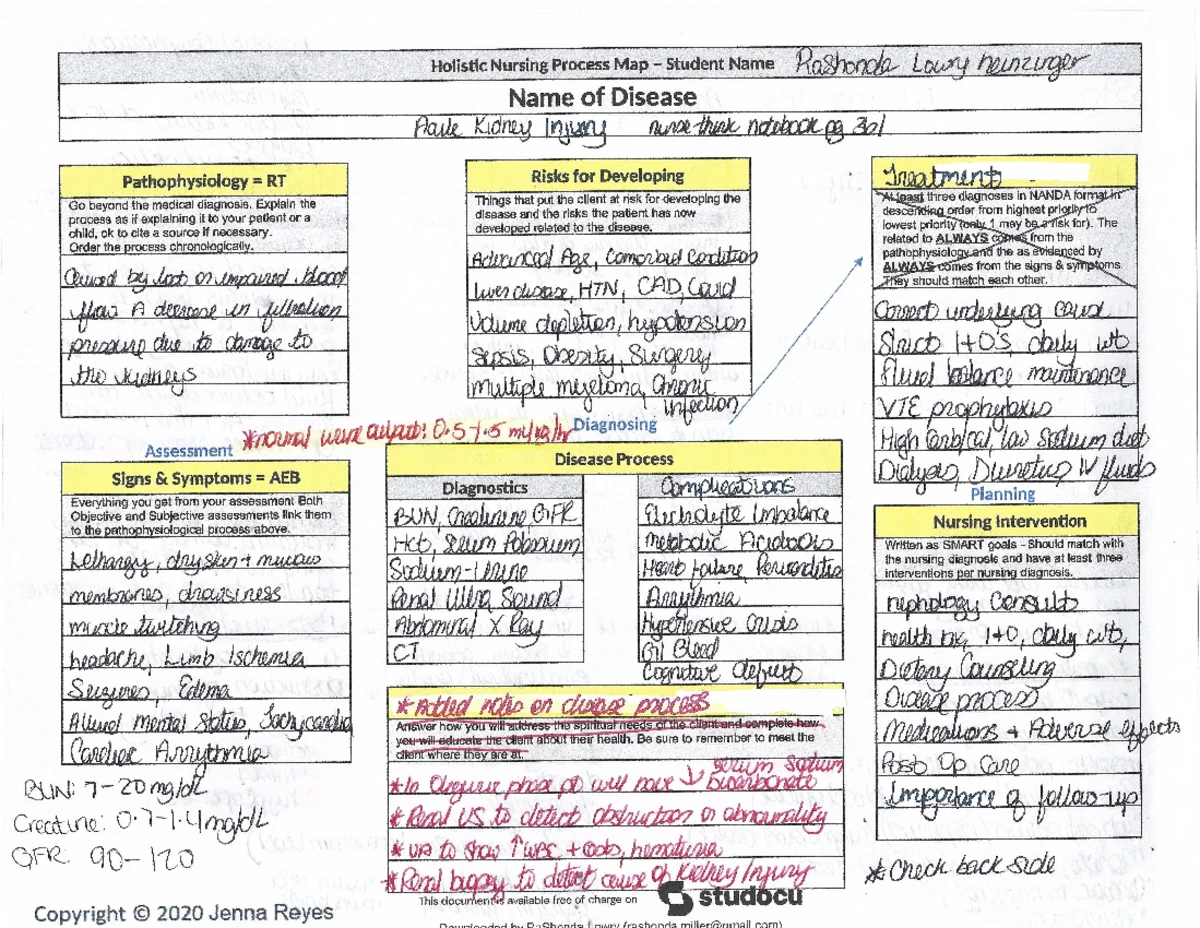 Holistic Nursing Process Map – Student Name RaShonda Lowry heinzinger
Name of Disease
Acute Kidney Injury nurse think notebook pg 301
Pathophysiology = RT
Go beyond the medical diagnosis. Explain the
process as if explaining it to your patient or a
child, ok to cite a source if necessary.
Order the process chronologically.
Caused by lost or impaired blood
flow A decrease in filtration
pressure due to damage to
the kidneys
Risks for Developing
Things that put the client at risk for developing the
disease and the risks the patient has now
developed related to the disease.
Advanced Age, Comorbid Condition
liver disease, HTN, CAD, Covid
Volume depletion, hypotension
Sepsis, Obesity, Surgery
multiple myeloma, Chronic
infection
Treatment
At least three diagnoses in NANDA format in
descending order from highest priority to
lowest priority (only 1 may be a risk for). The
related to ALWAYS comes from the
pathophysiology and the as evidenced by
ALWAYS comes from the signs & symptoms.
They should match each other.
Correct underlying cause
Strict I+OS, daily wt
fluid balance maintenance
VTE prophylaxis
High Carb/cal, low Sodium diet
Dialysis, Diuretics, IV fluids
*normal urine output: 0.5-1.5 ml/kg/hr
Diagnosing
Assessment
Signs & Symptoms = AEB
Everything you get from your assessment Both
Objective and Subjective assessments link them
to the pathophysiological process above.
Lethargy, dry skin + mucous
membranes, drowsiness
muscle twitching
headache, Limb Ischemia
Seizures, Edema
Altered Mental Status, Tachycardia
Cardiac Arrythmia
BUN: 7-20 mg/dL
Creatine: 0.7-1.4 mg/dL
GFR: 90-120
Disease Process
Diagnostics
BUN, Creatinine GFR
Hct, Serum Potassium
Sodium-Urine
Renal Ultra Sound
Abdominal X Ray
CT
Complications
Electrolyte Imbalance
metabolic Acidosis
Heart failure, Pericarditis
Arrythmia
Hypertensive Crisis
GI Bleed
Cognitive deficits
*Added notes on disease process
Answer how you will address the spiritual needs of the client and complete how
you will educate the client about their health. Be sure to remember to meet the
client where they are at.
*In Oliguric phase pt will have ↓ serum Sodium
bicarbonate
*Renal US to detect obstruction or abnormality
*UA to show ↑ WBC + casts, hematuria
*Renal biopsy to detect cause of Kidney Injury
Planning
Nursing Intervention
Written as SMART goals - Should match with
the nursing diagnosis and have at least three
interventions per nursing diagnosis.
nephology Consult
health hx, I+O, daily wt,
Dietary Counseling
Disease process
Medications + Adverse effects
Post Op Care
Importance of follow-up
*Check back side
Copyright © 2020 Jenna Reyes
This document is available free of charge on
studocu
Downloaded by RaShonda Lowry (rashonda.miller@gmail.com)